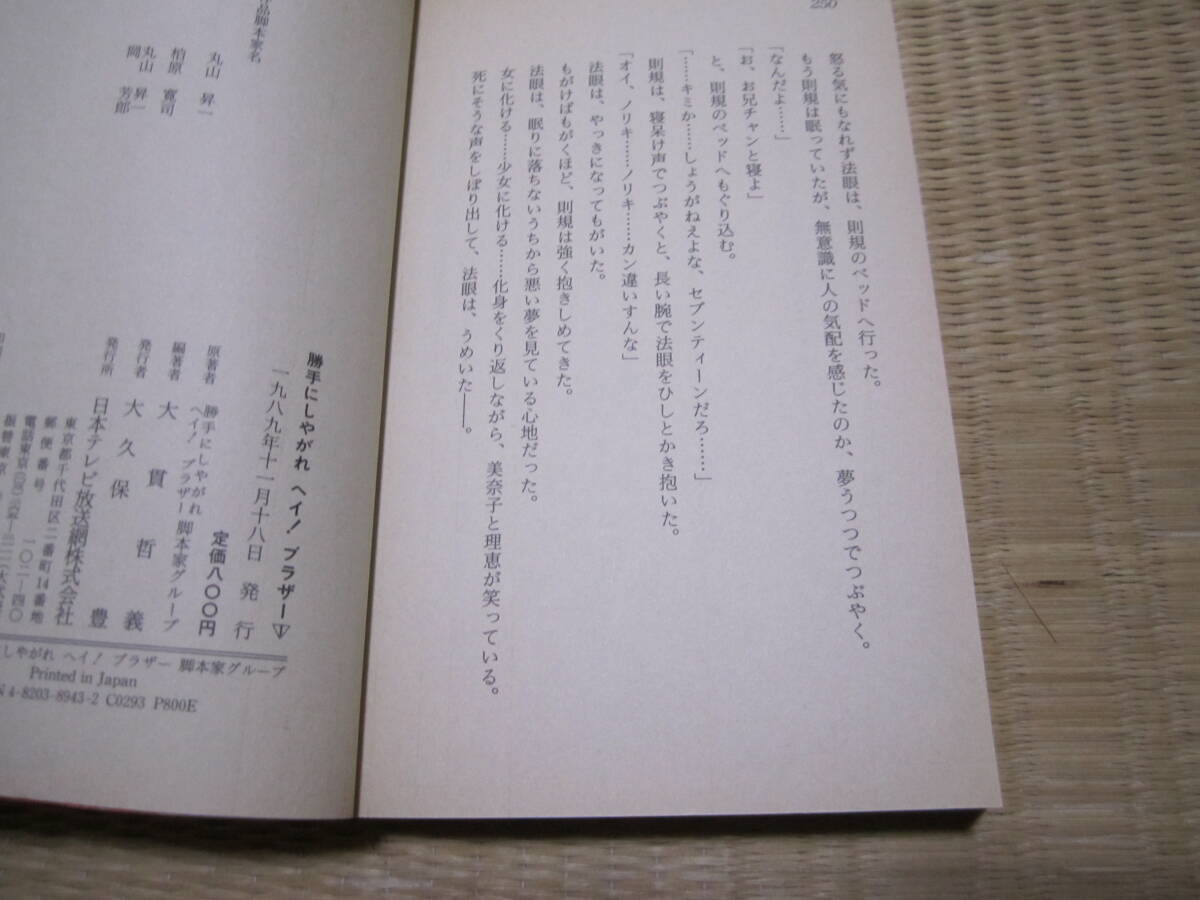 250
怒る気にもなれず法眼は、則規のベッドへ行った。
もう則規は眠っていたが、無意識に人の気配を感じたのか、夢うつつでつぶやく。
「なんだよ……」
「お、お兄チャンと寝よ」
と、則規のベッドへもぐり込む。
「……キミか……しょうがねえよな、セブンティーンだろ……」
則規は、寝呆け声でつぶやくと、長い腕で法眼をひしとかき抱いた。
「オイ、ノリキ……ノリキ……カン違いすんな」
法眼は、やっきになってもがいた。
もがけばもがくほど、則規は強く抱きしめてきた。
法眼は、眠りに落ちないうちから悪い夢を見ている心地だった。
女に化ける……少女に化ける……化身をくり返しながら、美奈子と理恵が笑っている。
死にそうな声をしぼり出して、法眼は、うめいた――。
品脚本家名
丸山 昇一
柏原 寛司
丸山 昇一
岡 芳郎
勝手にしやがれ ヘイ! ブラザーⅤ
一九八九年十一月十八日 発行
定価八〇〇円
原著者 勝手にしやがれ
ヘイ! ブラザー 脚本家グループ
編著者 大貫哲義
発行者 大久保 豊
発行所 日本テレビ放送網株式会社
東京都千代田区二番町14番地
郵便番号 一〇二―四〇
しやがれ ヘイ! ブラザー 脚本家グループ
Printed in Japan
N4-8203-8943-2 C0293 P800E